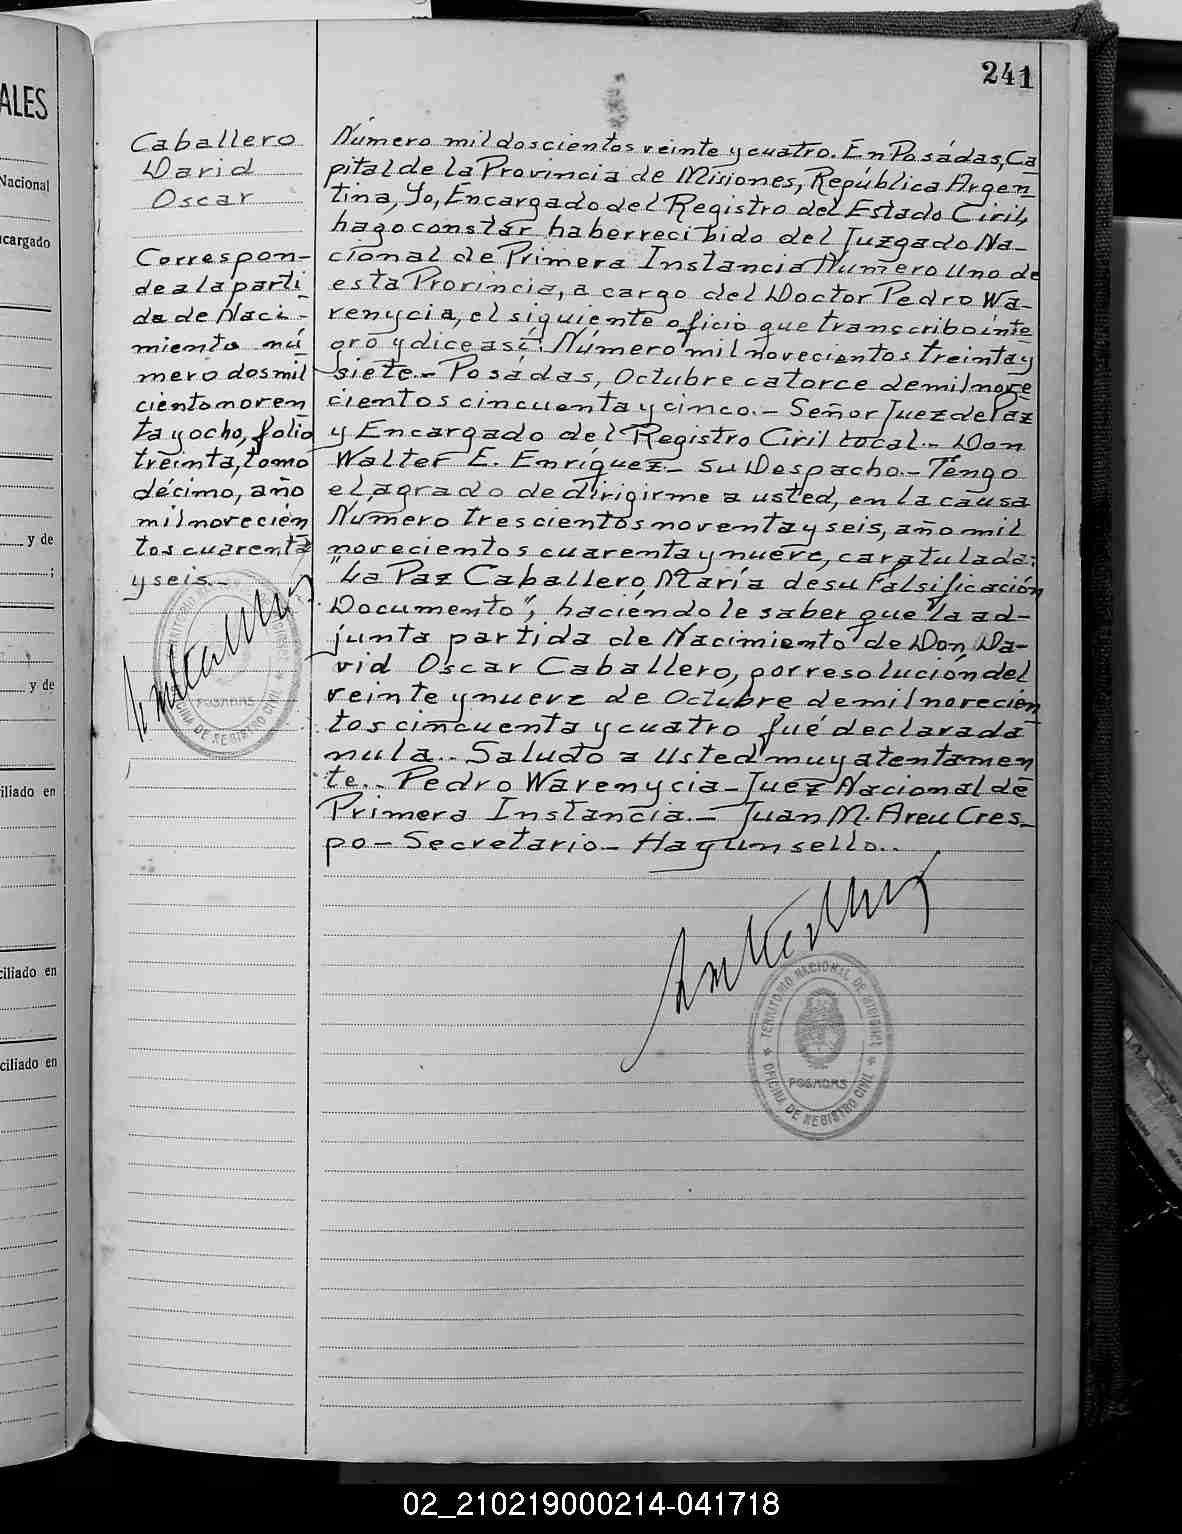 ALES
Nacional
ncargado
y de
;
y de
iliado en
ciliado en
ciliado en
241
Caballero
David
Oscar
Correspon-
de a la parti-
da de Naci-
miento nú
mero dos mil
ciento noven
ta y ocho, folio
treinta, tomo
décimo, año
mil novecién
tos cuarenta
y seis.-
Número mil doscientos veinte y cuatro. En Posádas, Ca
pital de la Provincia de Misiones, República Argen-
tina, Yo, Encargado del Registro del Estado Civil,
hago constár haber recibido del Juzgado Na-
cional de Primera Instancia Número Uno de
esta Provincia, a cargo del Doctor Pedro Wa-
renycia, el siguiente oficio que transcribo ínte
gro y dice así: Número mil novecientos treinta y
siete.- Posádas, Octubre catorce de mil nove
cientos cincuenta y cinco.- Señor Juez de Paz
y Encargado del Registro Civil Local.- Don
Walter E. Enríquez.- Su Despacho.- Téngo
el agrado de dirigirme a usted, en la causa
Número trescientos noventa y seis, año mil
novecientos cuarenta y nueve, caratulada:
"La Paz Caballero, María de su Falsificación
Documento", haciéndole saber que "la ad-
junta partida de Nacimiento de Don Da-
vid Oscar Caballero, por resolución del
veinte y nueve de Octubre de mil novecien
tos cincuenta y cuatro fué declarada
nula.- Saludo a Usted muy atentamen
te.- Pedro Warenycia - Juez Nacional de
Primera Instancia.- Juan M. Areu Cres-
po - Secretario - Hay un sello.-
TERRITORIO NACIONAL DE MISIONES
POSADAS
OFICINA DE REGISTRO CIVIL
TERRITORIO NACIONAL DE MISIONES
POSADAS
OFICINA DE REGISTRO CIVIL
02_210219000214-041718